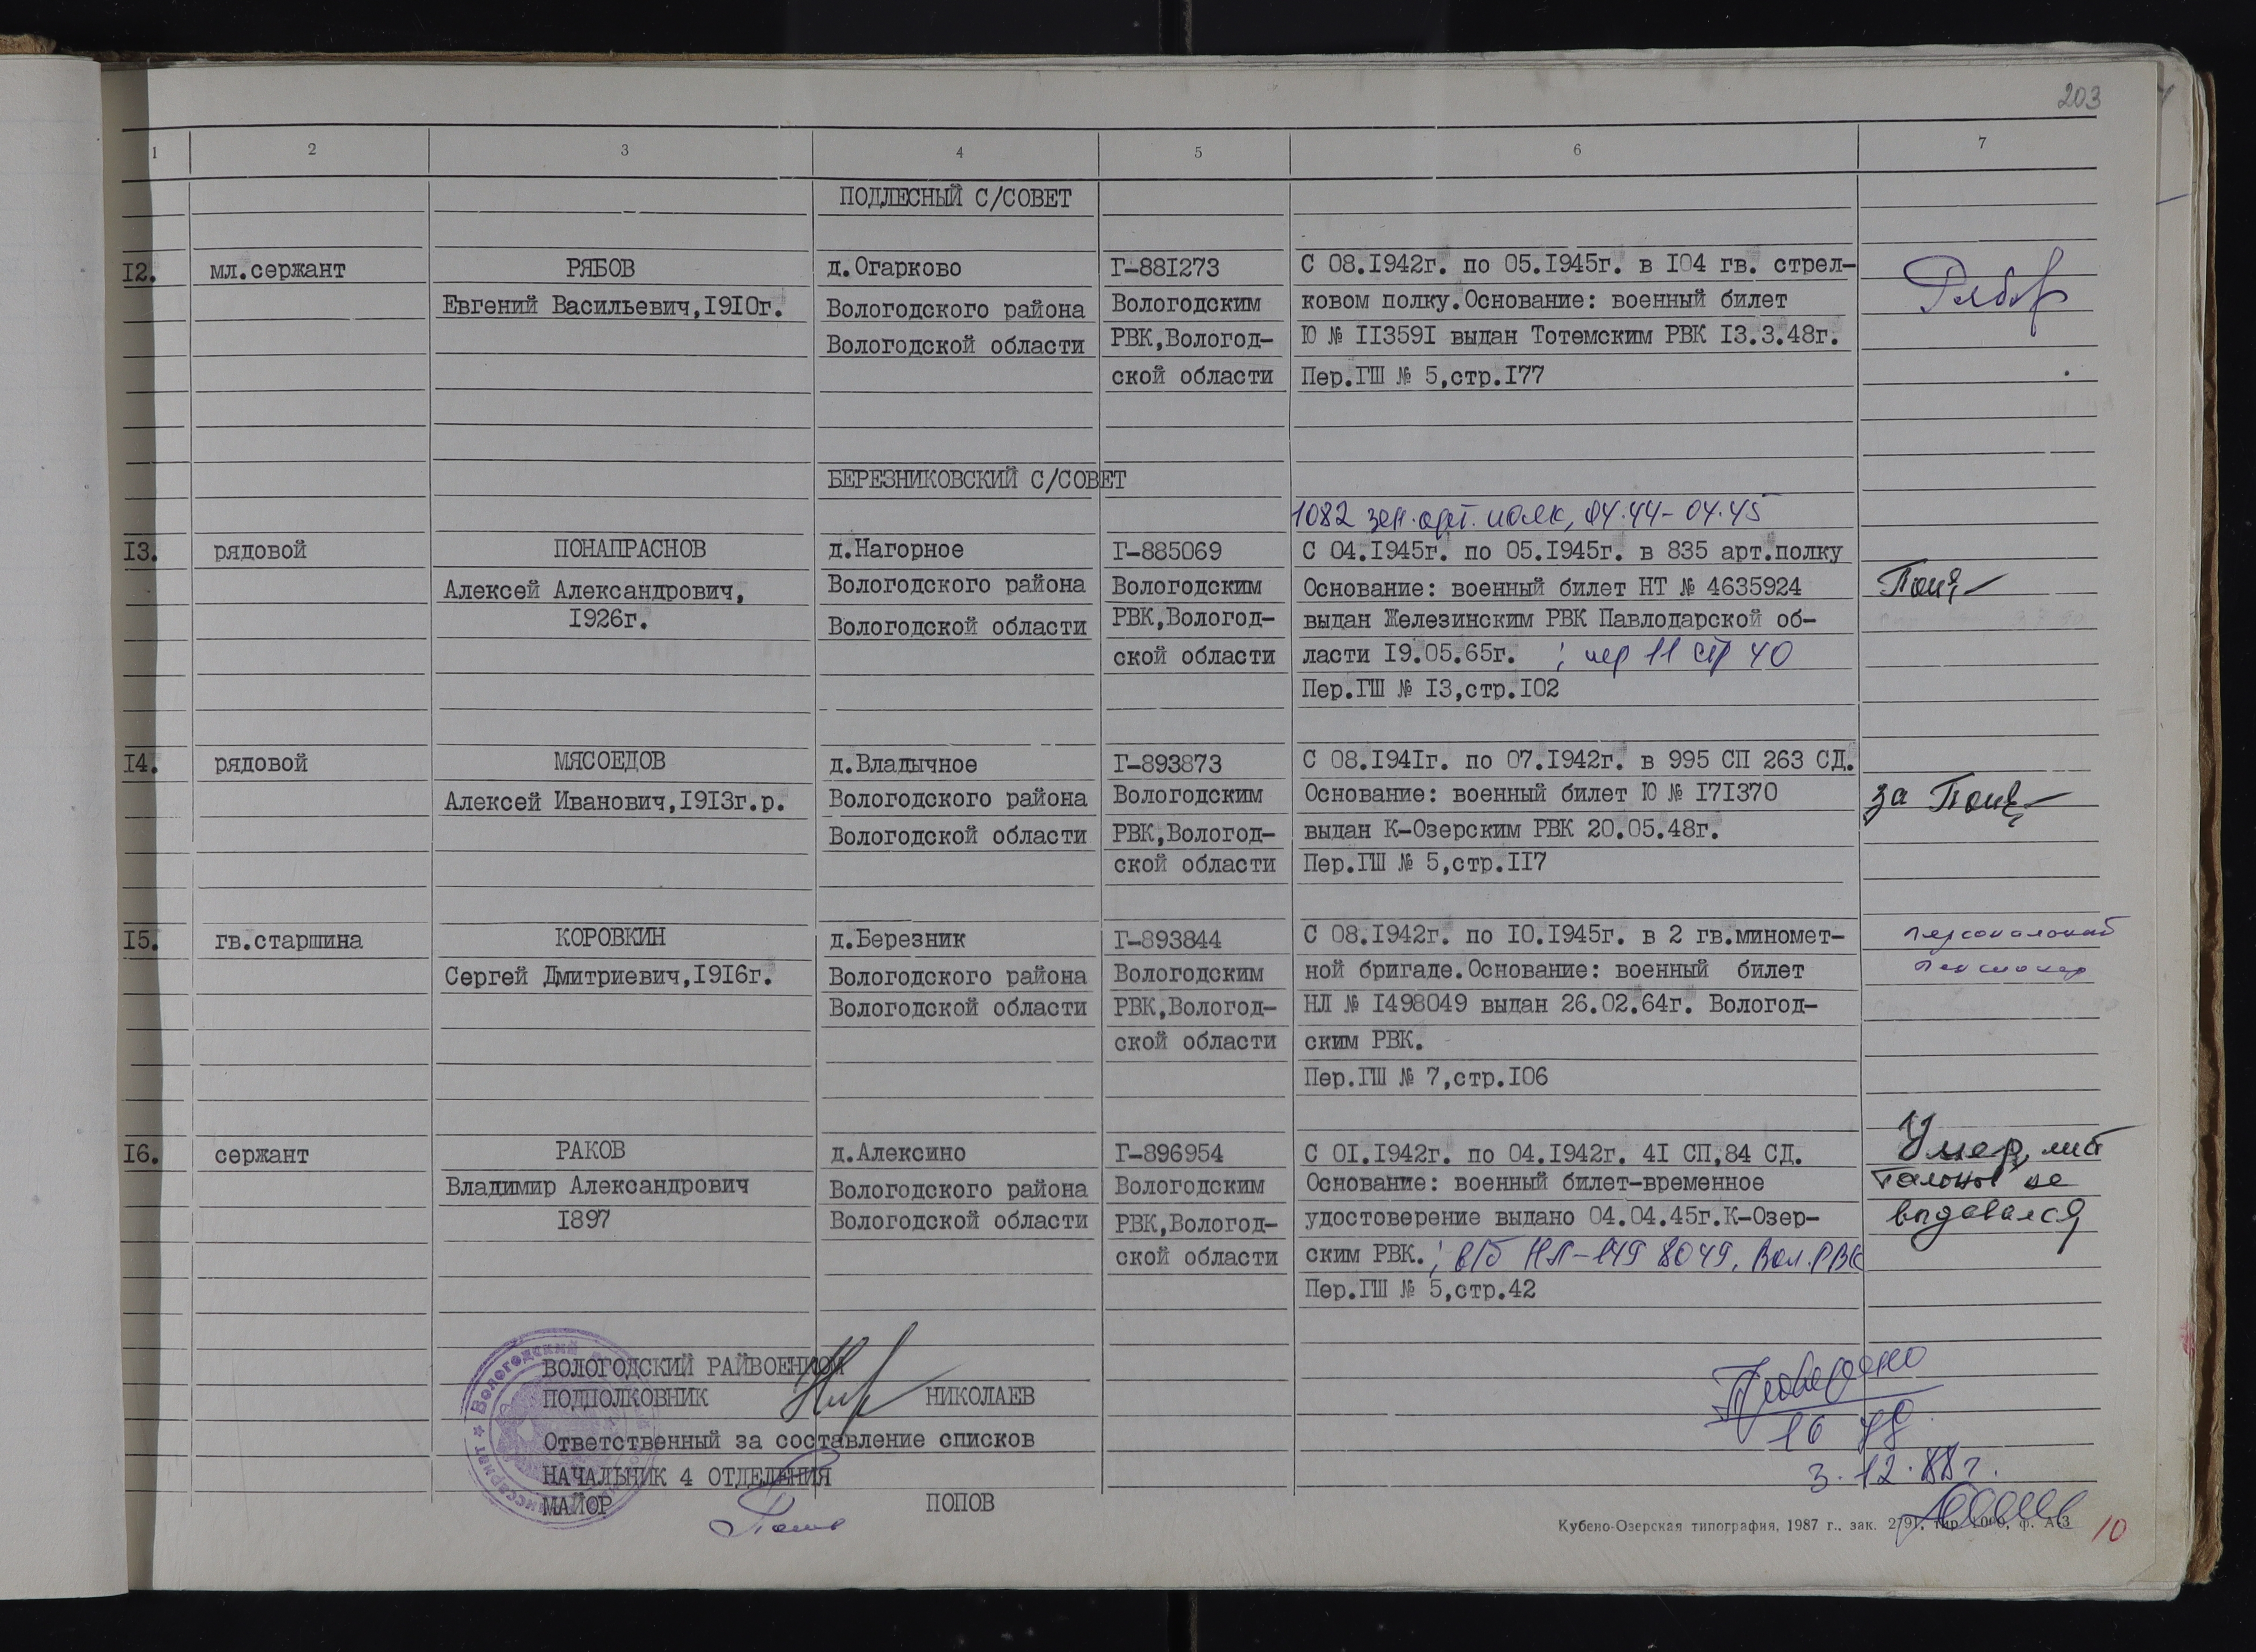 203
1 2 3 4 5 6 7
ПОДЛЕСНЫЙ С/СОВЕТ
I2. мл.сержант РЯБОВ д.Огарково Г-88I273 С 08.I942г. по 05.I945г. в I04 гв. стрел-
Евгений Васильевич,I9I0г. Вологодского района Вологодским ковом полку.Основание: военный билет
Вологодской области РВК,Вологод- Ю № II359I выдан Тотемским РВК I3.3.48г.
ской области Пер.ГШ № 5,стр.I77
БЕРЕЗНИКОВСКИЙ С/СОВЕТ
1082 зен.арт. полк, 04.44-04.45
I3. рядовой ПОНАПРАСНОВ д.Нагорное Г-885069 С 04.I945г. по 05.I945г. в 835 арт.полку
Алексей Александрович, Вологодского района Вологодским Основание: военный билет НТ № 4635924
I926г. Вологодской области РВК,Вологод- выдан Железинским РВК Павлодарской об-
ской области ласти I9.05.65г. ; пер 11 стр 40
Пер.ГШ № I3,стр.I02
I4. рядовой МЯСОЕДОВ д.Владычное Г-893873 С 08.I94Iг. по 07.I942г. в 995 СП 263 СД.
Алексей Иванович,I9I3г.р. Вологодского района Вологодским Основание: военный билет Ю № I7I370 за
Вологодской области РВК,Вологод- выдан К-Озерским РВК 20.05.48г.
ской области Пер.ГШ № 5,стр.II7
I5. гв.старшина КОРОВКИН д.Березник Г-893844 С 08.I942г. по I0.I945г. в 2 гв.миномет- персональный
Сергей Дмитриевич,I9I6г. Вологодского района Вологодским ной бригаде.Основание: военный билет пенсионер
Вологодской области РВК,Вологод- НЛ № I498049 выдан 26.02.64г. Вологод-
ской области ским РВК.
Пер.ГШ № 7,стр.I06
I6. сержант РАКОВ д.Алексино Г-896954 С 0I.I942г. по 04.I942г. 4I СП,84 СД. Умер, лист
Владимир Александрович Вологодского района Вологодским Основание: военный билет-временное талонов не
I897 Вологодской области РВК,Вологод- удостоверение выдано 04.04.45г.К-Озер- выдавался
ской области ским РВК. ; в/б НЛ-149 8049, Вол.РВК
Пер.ГШ № 5,стр.42
ВОЛОГОДСКИЙ РАЙВОЕНКОМ
ПОДПОЛКОВНИК НИКОЛАЕВ
Ответственный за составление списков
НАЧАЛЬНИК 4 ОТДЕЛЕНИЯ
МАЙОР ПОПОВ
Проверено
3.12.88г.
Кубено-Озерская типография, 1987 г., зак. 2791, тир. 1000, ф. А-3
10